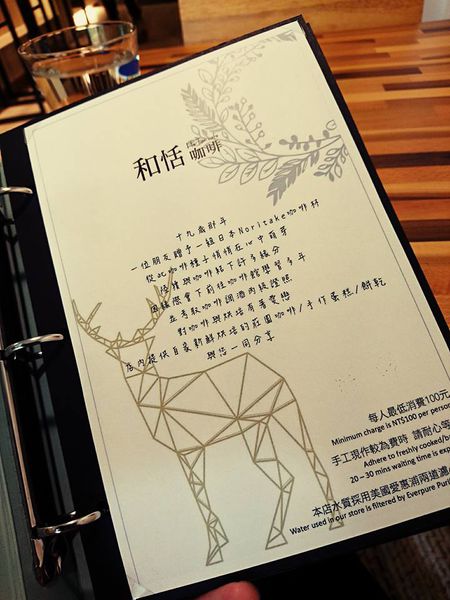 和恬 咖啡
十九歲那年
一位朋友贈予一組日本Noritake咖啡杯
從此咖啡種子悄悄在心中萌芽
陸續與咖啡結下許多緣分
因緣際會下前往咖啡館學習多年
並考取咖啡調酒丙級證照
對咖啡與烘焙有著愛戀
店內提供自家新鮮烘焙的莊園咖啡/手作蛋糕/餅乾
與您一同分享
每人最低消費100元
Minimum charge is NT$100 per person
手工現作較為費時 請耐心等
Adhere to freshly cooked/b
20-30 mins waiting time is exp
本店水質採用美國愛惠浦兩道濾
Water used in our store is filtered by Everpure Puri